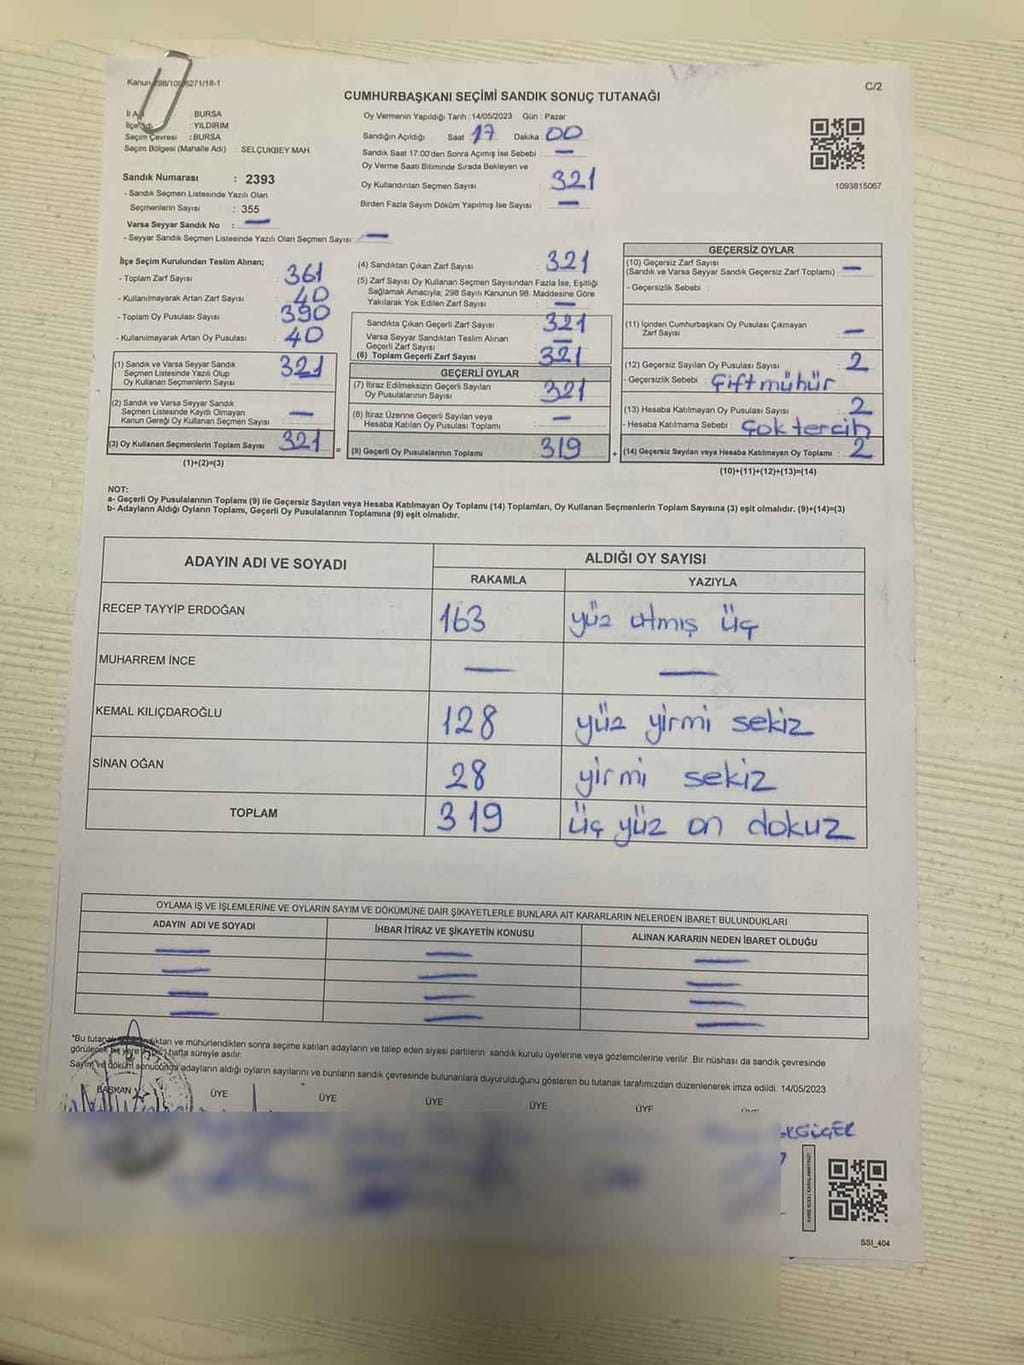 C/2
CUMHURBAŞKANI SEÇİMİ SANDIK SONUÇ TUTANAĞI
BURSA
YILDIRIM
Seçim Çevresi : BURSA
Seçim Bölgesi (Mahalle Adı) : SELÇUKBEY MAH
Oy Vermenin Yapıldığı Tarih : 14/05/2023 Gün : Pazar
Sandığın Açıldığı Saat : 17 Dakika : 00
Sandık Saat 17:00'den Sonra Açımış İse Sebebi : —
Oy Verme Saati Bitiminde Sırada Bekleyen ve
Oy Kullandırılan Seçmen Sayısı : 321
Birden Fazla Sayım Döküm Yapılmış İse Sayısı : —
1093815067
Sandık Numarası : 2393
- Sandık Seçmen Listesinde Yazılı Olan
Seçmenlerin Sayısı : 355
Varsa Seyyar Sandık No : —
- Seyyar Sandık Seçmen Listesinde Yazılı Olan Seçmen Sayısı : —
İlçe Seçim Kurulundan Teslim Alınan;
- Toplam Zarf Sayısı : 361
- Kullanılmayarak Artan Zarf Sayısı : 40
- Toplam Oy Pusulası Sayısı : 390
- Kullanılmayarak Artan Oy Pusulası : 40
(1) Sandık ve Varsa Seyyar Sandık
Seçmen Listesinde Yazılı Olup
Oy Kullanan Seçmenlerin Sayısı : 321
(2) Sandık ve Varsa Seyyar Sandık
Seçmen Listesinde Kayıtlı Olmayan
Kanun Gereği Oy Kullanan Seçmen Sayısı : —
(3) Oy Kullanan Seçmenlerin Toplam Sayısı : 321
(1)+(2)=(3)
(4) Sandıktan Çıkan Zarf Sayısı : 321
(5) Zarf Sayısı Oy Kullanan Seçmen Sayısından Fazla İse, Eşitliği
Sağlamak Amacıyla; 298 Sayılı Kanunun 98. Maddesine Göre
Yakılarak Yok Edilen Zarf Sayısı : —
Sandıkta Çıkan Geçerli Zarf Sayısı : 321
Varsa Seyyar Sandıktan Teslim Alınan
Geçerli Zarf Sayısı : —
(6) Toplam Geçerli Zarf Sayısı : 321
GEÇERLİ OYLAR
(7) İtiraz Edilmeksizin Geçerli Sayılan
Oy Pusulalarının Sayısı : 321
(8) İtiraz Üzerine Geçerli Sayılan veya
Hesaba Katılan Oy Pusulası Toplamı : —
= (9) Geçerli Oy Pusulalarının Toplamı : 319
GEÇERSİZ OYLAR
(10) Geçersiz Zarf Sayısı
(Sandık ve Varsa Seyyar Sandık Geçersiz Zarf Toplamı) : —
- Geçersizlik Sebebi :
(11) İçinden Cumhurbaşkanı Oy Pusulası Çıkmayan
Zarf Sayısı : —
(12) Geçersiz Sayılan Oy Pusulası Sayısı : 2
- Geçersizlik Sebebi : Çift mühür
(13) Hesaba Katılmayan Oy Pusulası Sayısı : 2
- Hesaba Katılmama Sebebi : Çok tercih
+ (14) Geçersiz Sayılan veya Hesaba Katılmayan Oy Toplamı : 2
(10)+(11)+(12)+(13)=(14)
NOT:
a- Geçerli Oy Pusulalarının Toplamı (9) ile Geçersiz Sayılan veya Hesaba Katılmayan Oy Toplamı (14) Toplamları, Oy Kullanan Seçmenlerin Toplam Sayısına (3) eşit olmalıdır. (9)+(14)=(3)
b- Adayların Aldığı Oyların Toplamı, Geçerli Oy Pusulalarının Toplamına (9) eşit olmalıdır.
ADAYIN ADI VE SOYADI
ALDIĞI OY SAYISI
RAKAMLA YAZIYLA
RECEP TAYYİP ERDOĞAN 163 yüz atmış üç
MUHARREM İNCE — —
KEMAL KILIÇDAROĞLU 128 yüz yirmi sekiz
SİNAN OĞAN 28 yirmi sekiz
TOPLAM 319 üç yüz on dokuz
OYLAMA İŞ VE İŞLEMLERİNE VE OYLARIN SAYIM VE DÖKÜMÜNE DAİR ŞİKAYETLERLE BUNLARA AİT KARARLARIN NELERDEN İBARET BULUNDUKLARI
ADAYIN ADI VE SOYADI İHBAR İTİRAZ VE ŞİKAYETİN KONUSU ALINAN KARARIN NEDEN İBARET OLDUĞU
— — —
— — —
— — —
— — —
ve mühürlendikten sonra seçime katılan adayların ve talep eden siyasi partilerin sandık kurulu üyelerine veya gözlemcilerine verilir. Bir nüshası da sandık çevresinde
hafta süreyle asılır.
Sayım ve döküm sonucunda adayların aldığı oyların sayılarını ve bunların sandık çevresinde bulunanlara duyurulduğunu gösteren bu tutanak tarafımızdan düzenlenerek imza edildi. 14/05/2023
BAŞKAN ÜYE ÜYE ÜYE ÜYE ÜYE
SSI_404